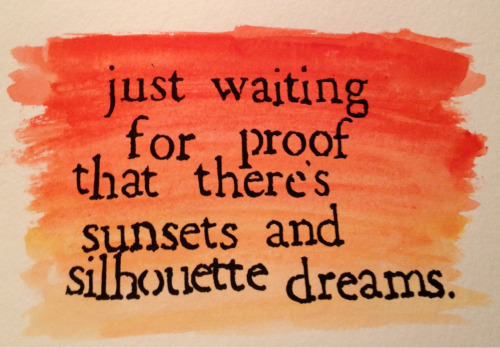 just waiting
for proof
that there's
sunsets and
silhouette dreams.